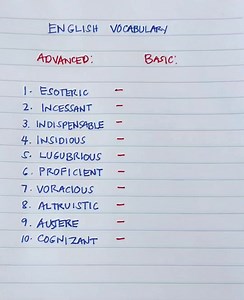 ENGLISH VOCABULARY
ADVANCED: BASIC:
1. ESOTERIC –
2. INCESSANT –
3. INDISPENSABLE –
4. INSIDIOUS –
5. LUGUBRIOUS –
6. PROFICIENT –
7. VORACIOUS –
8. ALTRUISTIC –
9. AUSTERE –
10. COGNIZANT –